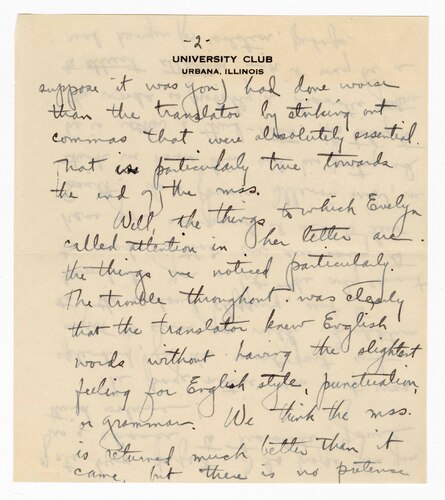 -2-
UNIVERSITY CLUB
URBANA, ILLINOIS
suppose it was you) had done worse
than the translator by striking out
commas that were absolutely essential.
That is particularly true towards
the end of the mss.
Well, the things to which Evelyn
called attention in her letter are
the things we noticed particularly.
The trouble throughout was clearly
that the translator knew English
words without having the slightest
feeling for English style, punctuation,
or grammar. We think the mss.
is returned much better than it
came, but there is no pretense